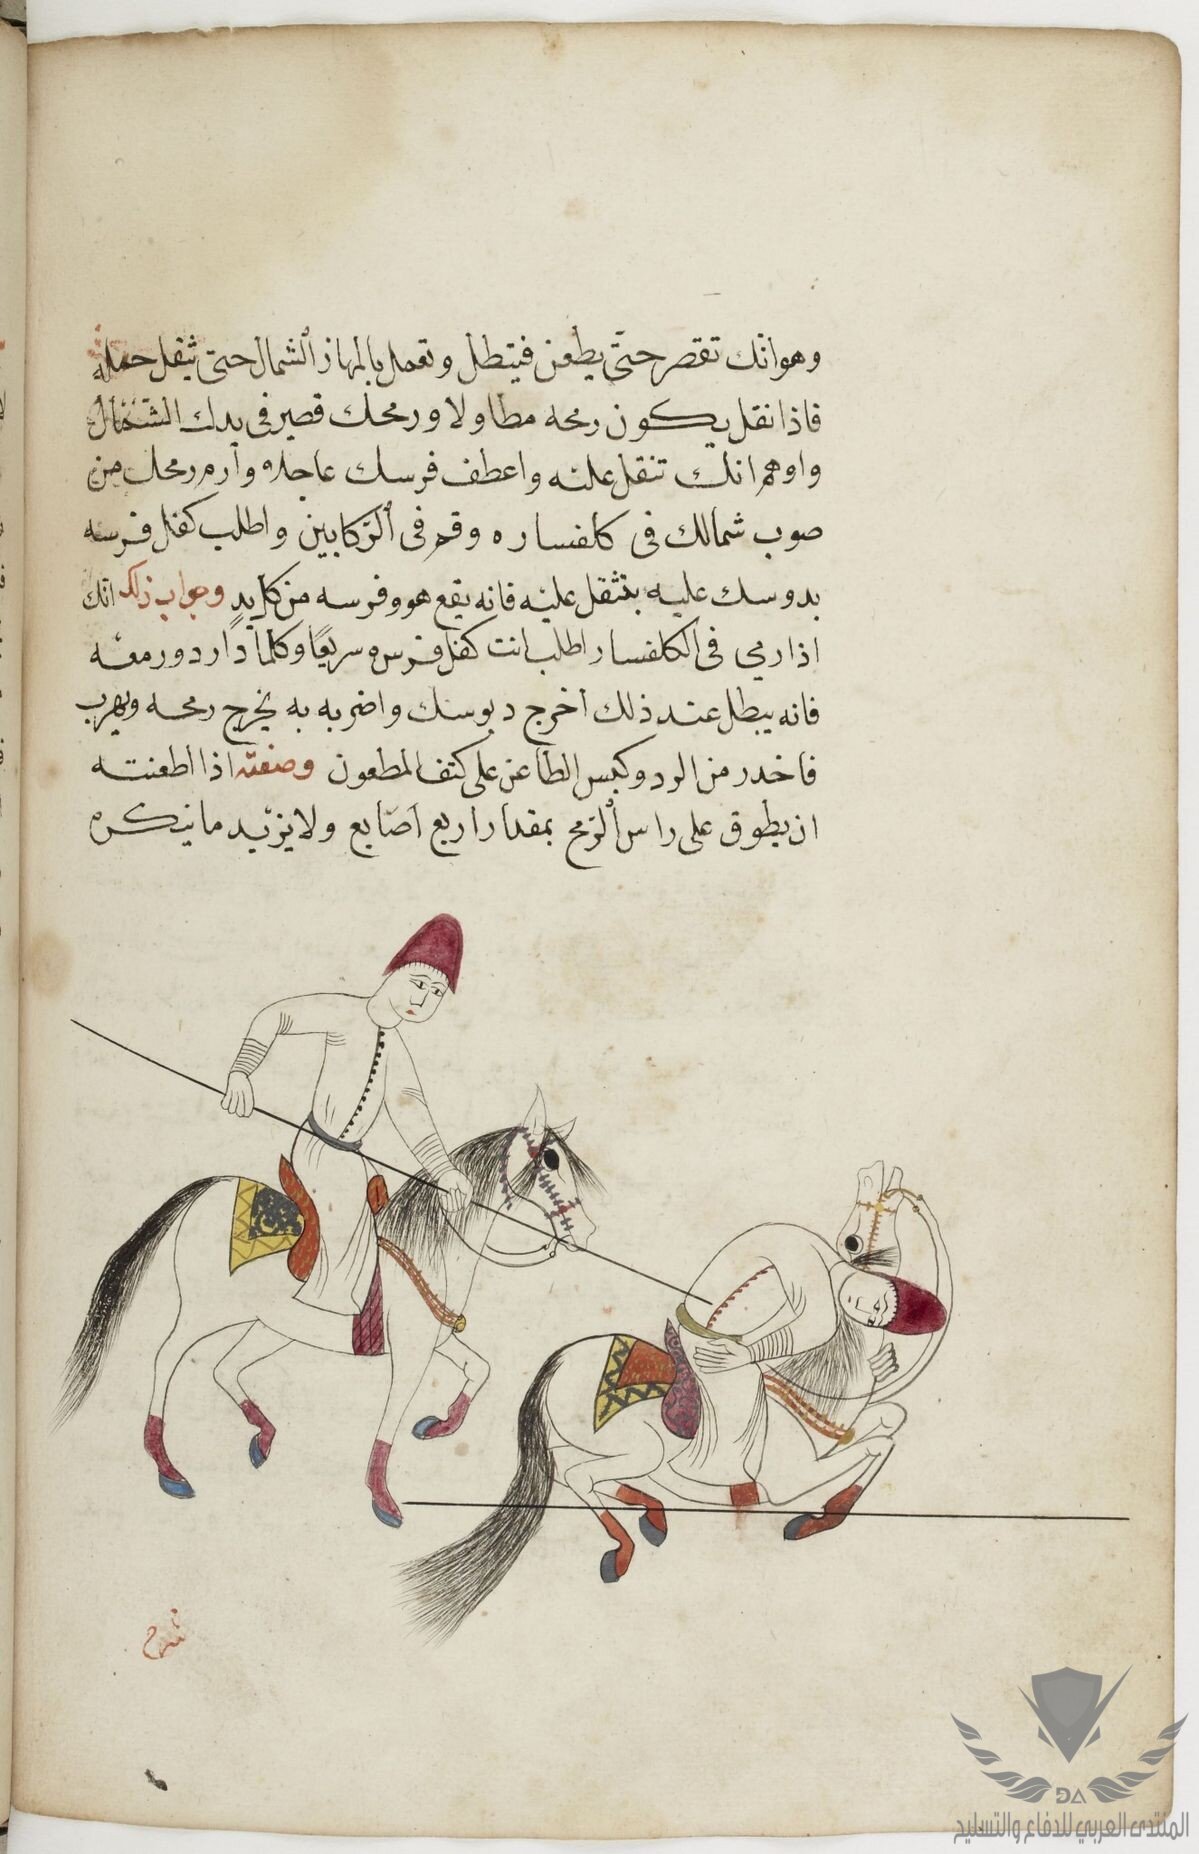 وهو انّك تقصر حتّى يطعن فيتطل وتعمل بالمهماز الشمال حتى تثقل حمله
فاذا نقل يكون رمحه مطاولا ورمحك قصير فى يدك الشمال
واوهم انك تنقل عليه واعطف فرسك عاجله وآرم رمحك من
صوب شمالك فى كلفساره وقم فى الرّكابين واطلب كفل فرسه
بدوسك عليه بتثقل عليه فانه يقع هو وفرسه من كل يدٍ وجواب ذلك انك
اذا رمي فى الكلفسار اطلب انت كفل فرسه سريعًا وكلما دار دور معه
فانه يبطل عند ذلك أخرج دبوسك واضربه به يخرج رمحه ويهرب
فاحذر من الرد وكبس الطاعن على كتف المطعون وصفته اذا اطعنته
ان يطوق على راس الرّمح بمقدار اربع اصّابع ولا يزيد ما ينكره
شرح
المنتدى العربي للدفاع والتسليح